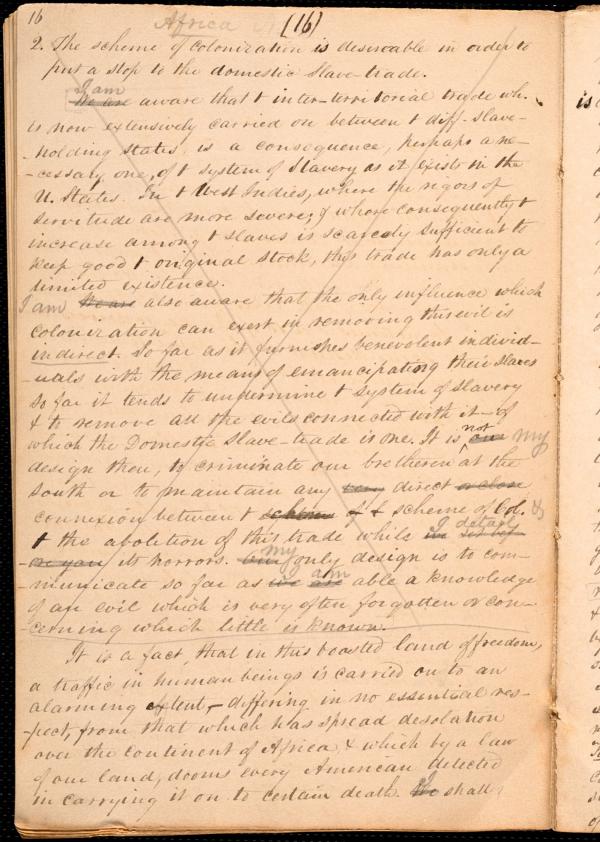 16 Africa (16)
2. The scheme of Colonization is desireable in order to
put a stop to the domestic Slave-trade.
I am
We are aware that t inter-territorial trade wh.
is now extensively carried on between t diff- slave-
-holding states, is a consequence, perhaps a ne-
-cessary one, of t system of Slavery as it exists in the
U. States. In t West Indies, where the rigors of
servitude are more severe, & where consequently t
increase among t slaves is scarcely sufficient to
keep good t original stock, this trade has only a
limited existence.
I am We are also aware that the only influence which
colonization can exert in removing this evil is
indirect. So far as it furnishes benevolent individ-
-uals with the means of emancipating their slaves
so far it tends to undermine t system of Slavery
& to remove all the evils connected with it - of
which the Domestic Slave-trade is one. It is not our my
design then, to criminate our bretheren at the
South or to maintain any very direct or close
connexion between t scheme of t scheme of Col. &
t the abolition of this trade while I detail
its horrors. Our my only design is to com-
-municate so far as we are I am able a knowledge
of an evil which is very often forgotten or con-
-cerning which little is known.
It is a fact, that in this boasted land of freedom,
a traffic in human beings is carried on to an
alarming extent, - differing in no essential res-
-pect, from that which has spread desolation
over the continent of Africa, & which by a law
of our land, dooms every American detected
in carrying it on to certain death. We shall
is